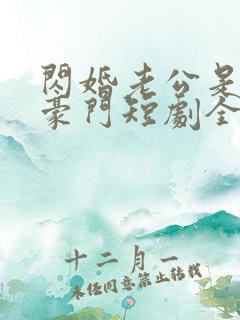 閃婚老公是
豪門短劇全
十二月一
未經同意禁止轉載